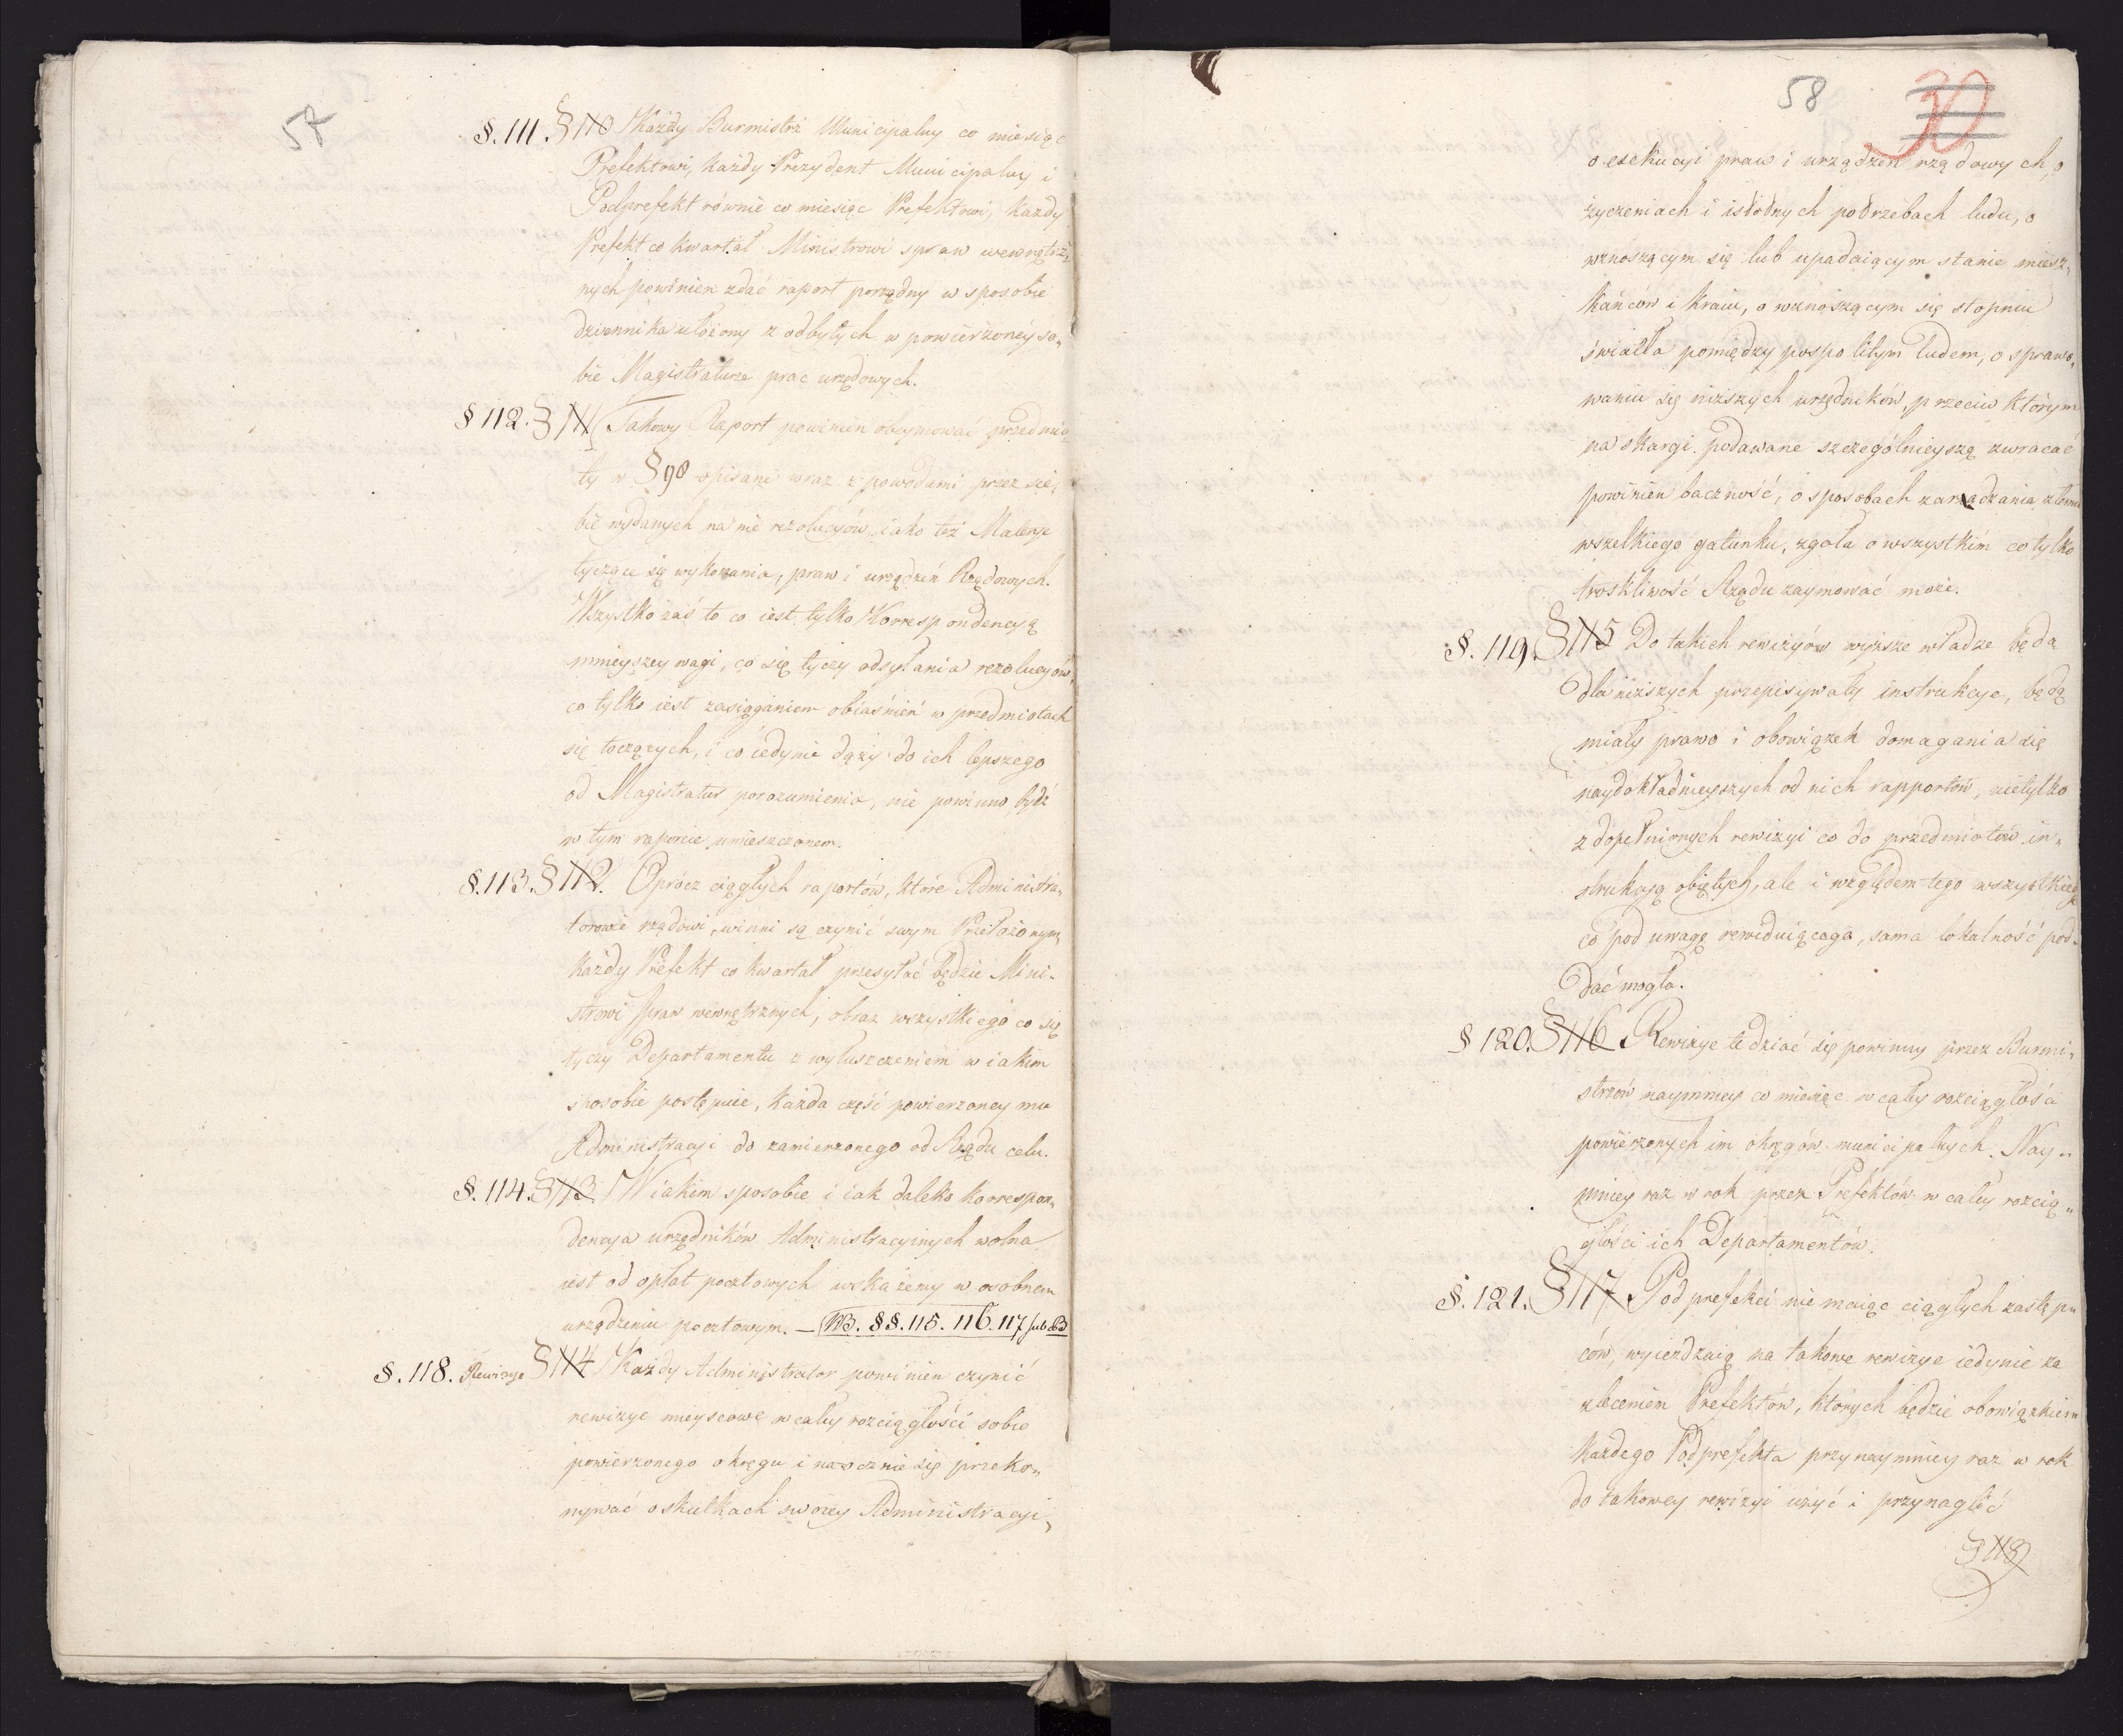 57
§.111. §110 Każdy Burmistrz Municipalny co miesiąc
Prefektowi, każdy Prezydent Municipalny i
Podprefekt równie co miesiąc Prefektowi, każdy
Prefekt co kwartał Ministrowi spraw wewnętrz„
nych powinien zdać raport porządny w sposobie
dziennika ułożony z odbytych w powierzoney so„
bie Magistraturze prac urzędowych.
§112. §111 Takowy Raport powinien obeymować przedmio
ty w §98 opisane wraz z powodami przez sie„
bie wydanych na nie rezolucyów, iako też Materye
tyczące się wykonania, praw i urządzeń Rządowych.
Wszystko zaś to co iest tylko Korrespondencyą
mnieyszey wagi, co się tyczy odsyłania rezolucyów,
co tylko iest zasiąganiem obiaśnień w przedmiotach
się toczących, i co iedynie dąży do ich lepszego
od Magistratur porozumienia, nie powinno bydź
w tym raporcie umieszczonem.
§.113. §112. Oprócz ciągłych raportów, które Administra„
torowie rządowi, winni są czynić swym Przełożonym,
każdy Prefekt co kwartał przesyłać będzie Mini„
strowi spraw wewnętrznych, obraz wszystkiego co się
tyczy Departamentu z wyłuszczeniem w iakim
sposobie postępuie, każda część powierzoney mu
Administracyi do zamierzonego od Rządu celu.
§.114. §113 W iakim sposobie i iak daleko korrespon„
dencya urzędników Administracyinych wolna
iest od opłat pocztowych wskażemy w osobnem
urządzeniu pocztowym. — NB. §§.115. 116. 117 sub B
§.118. Rewizye §114 Każdy Administrator powinien czynić
rewizye mieyscowe w całey rozciągłości sobie
powierzonego okręgu i naocznie się przeko„
nywać o skutkach swoiey Administracyi,
58 30
o exekucyi praw i urządzeń rządowych, o
życzeniach i istotnych potrzebach ludu, o
wznoszącym się lub upadaiącym stanie miesz„
kańców i kraiu, o wznoszącym się stopniu
światła pomiędzy pospolitym ludem, o sprawo„
waniu się niższych urzędników, przeciw którym
na skargi podawane szczególnieyszą zwracać
powinien baczność, o sposobach zaradzania złemu
wszelkiego gatunku, zgoła o wszystkim co tylko
troskliwość Rządu zaymować może.
§.119. §115 Do takich rewizyów wyższe władze będą
dla niższych przepisywały instrukcye, będą
miały prawo i obowiązek domagania się
naydokładnieyszych od nich rapportów, nietylko
z dopełnionych rewizyi co do przedmiotów in„
strukcyą obiętych, ale i względem tego wszystkiego
co pod uwagę rewiduiącego, sama lokalność pod„
dać mogła.
§120. §116 Rewizye te dziać się powinny przez Burmi„
strzów naymniey co miesiąc w całey rozciągłości
powierzonych im okręgów municipalnych. Nay„
mniey raz w rok przez Prefektów w całey rozcią„
głości ich Departamentów.
§.121. §117 Podprefekci nie maiąc ciągłych zastępu
ców, wyieżdzaią na takowe rewizye iedynie za
zleceniem Prefektów, których będzie obowiązkiem
każdego Podprefekta przynaymniey raz w rok
do takowey rewizyi użyć i przynaglić
§118